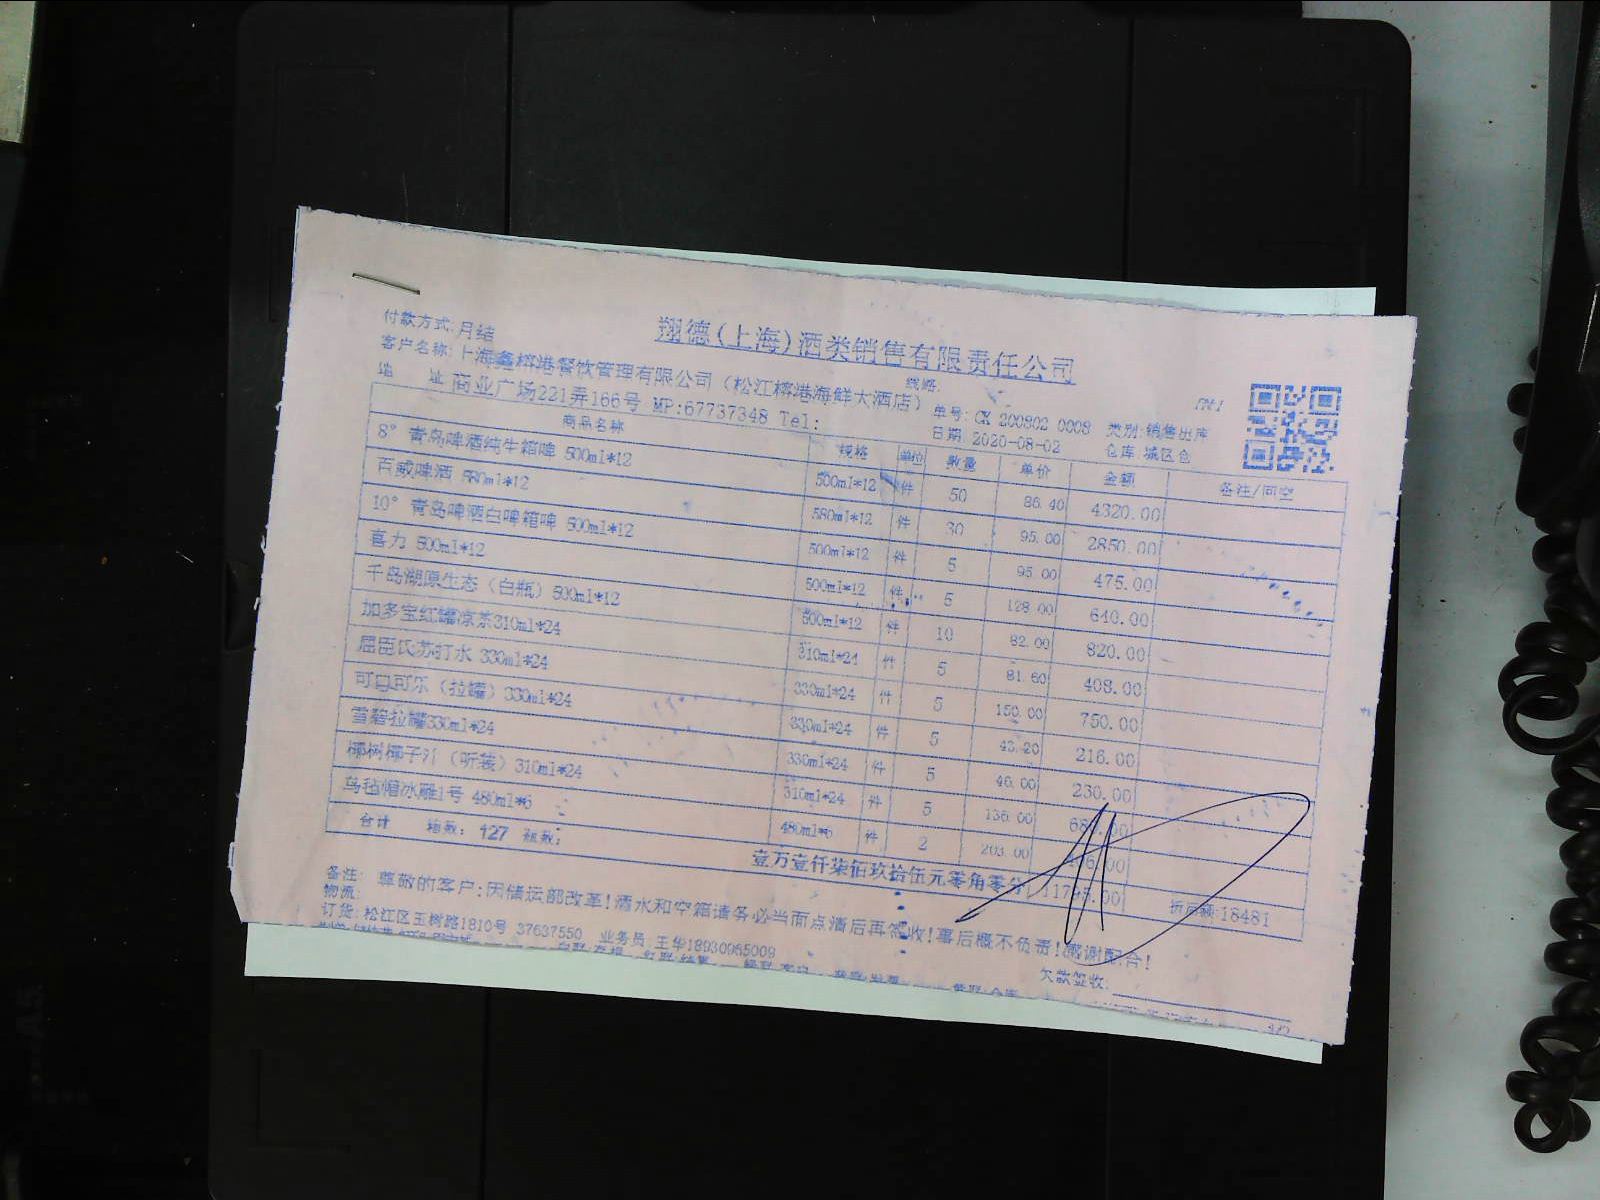 翔德(上海)酒类销售有限责任公司
付款方式:月结
客户名称:上海鑫榕港餐饮管理有限公司(松江榕港海鲜大酒店) 线路:
地 址 商业广场221弄166号 MP:67737348 Tel: 单号: CK 200802 0008 类别:销售出库
日期 2020-08-02 仓库:城区仓
商品名称 规格 单位 数量 单价 金额 备注/回空
8° 青岛啤酒纯生箱啤 500ml*12 500ml*12 件 50 86.40 4320.00
百威啤酒 580ml*12 580ml*12 件 30 95.00 2850.00
10° 青岛啤酒白啤箱啤 500ml*12 500ml*12 件 5 95.00 475.00
喜力 500ml*12 500ml*12 件 5 128.00 640.00
千岛湖原生态(白瓶)500ml*12 500ml*12 件 10 82.00 820.00
加多宝红罐凉茶310ml*24 310ml*24 件 5 81.60 408.00
屈臣氏苏打水 330ml*24 330ml*24 件 5 150.00 750.00
可口可乐(拉罐)330ml*24 330ml*24 件 5 43.20 216.00
雪碧拉罐330ml*24 330ml*24 件 5 46.00 230.00
椰树椰子汁(听装)310ml*24 310ml*24 件 5 136.00
乌毡帽冰雕1号 480ml*6 480ml*6 件 2 203.00
合计 箱数: 127 瓶数: 壹万壹仟柒佰玖拾伍元零角零分 11795.00 折后额:18481
备注: 尊敬的客户:因储运部改革!酒水和空箱请务必当面点清后再签收!事后概不负责!感谢配合!
物流:
订货:松江区玉树路1810号 37637550 业务员:王华18930965009 欠款签收: